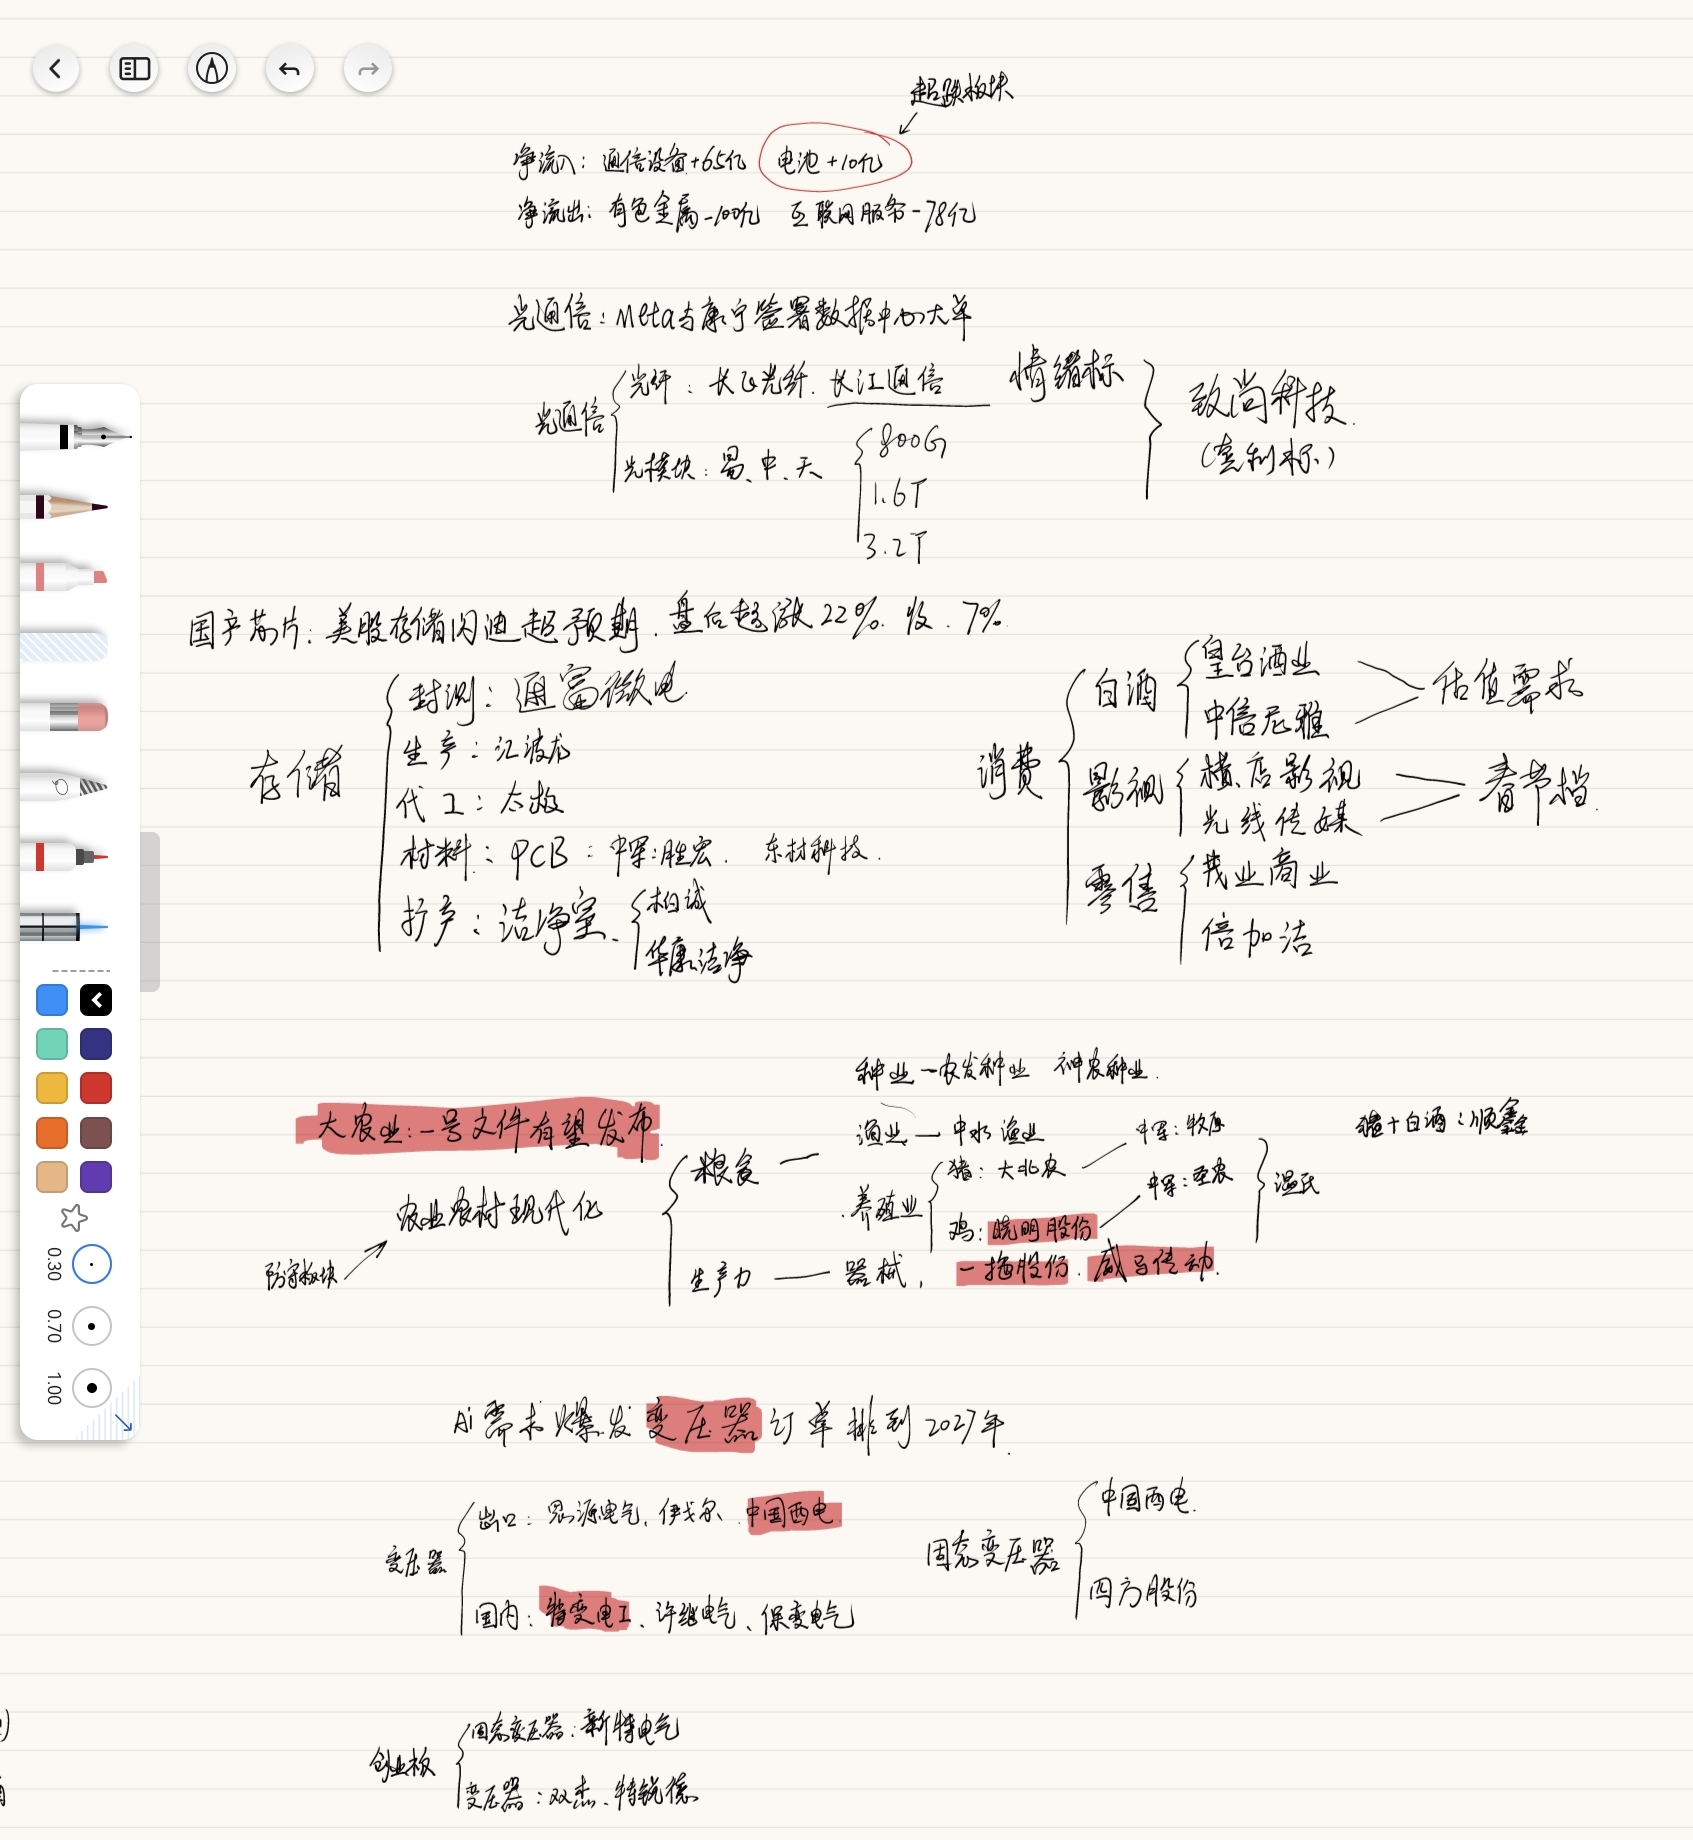 超跌板块
净流入：通信设备+65亿 电池+10亿
净流出：有色金属-100亿 互联网服务-78亿
光通信：Meta与康宁签署数据中心大单
光通信
光纤：长飞光纤、长江通信
情绪标
光模块：易、中、天
800G
1.6T
3.2T
致尚科技.
(套利标)
国产芯片：美股存储闪迪超预期.盘后超涨22%.收.7%.
存储
封测：通富微电
生产：江波龙
代工：太极
材料：PCB：中军：胜宏. 东材科技.
扩产：洁净室、
柏诚
华康洁净
消费
白酒
皇台酒业
中信尼雅
估值需求
影视
横店影视
光线传媒
春节档.
零售
茂业商业
倍加洁
大农业：一号文件有望发布.
农业农村现代化
防守板块
粮食
种业—农发种业 神农种业.
渔业—中水渔业
养殖业
猪：大北农
中军：牧原
鸡：晓明股份
中军：圣农
温氏
猪+白酒：顺鑫
生产力——器械，一拖股份.威马传动.
Ai需求爆发变压器订单排到2027年.
变压器
出口：思源电气、伊戈尔.中国西电
国内：特变电工、许继电气、保变电气
固态变压器
中国西电.
四方股份
创业板
固态变压器：新特电气
变压器：双杰、特锐德
0.30
0.70
1.00